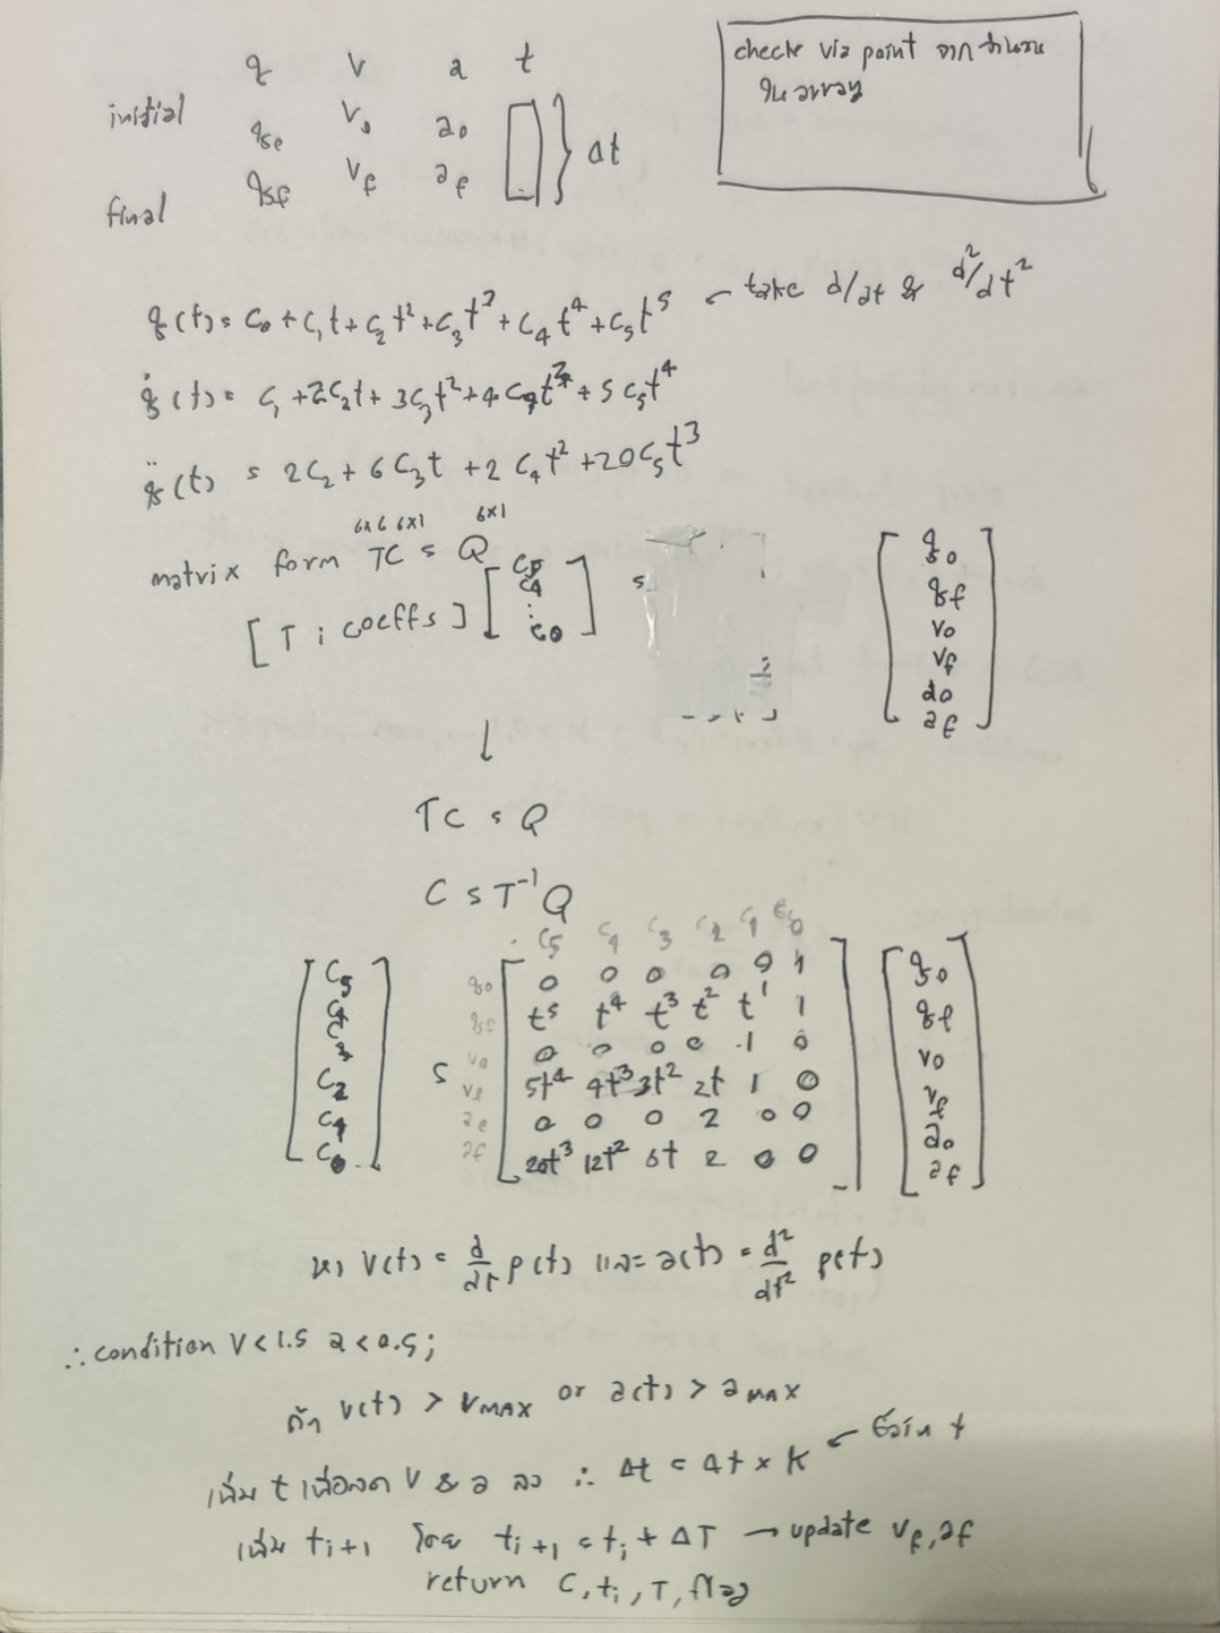 q v a t
initial q₀ v₀ a₀
final qf vf af } Δt
check via point จาก จำนวน
ใน array
q(t) = c₀ + c₁t + c₂t² + c₃t³ + c₄t⁴ + c₅t⁵ ← take d/dt & d²/dt²
q̇(t) = c₁ + 2c₂t + 3c₃t² + 4c₄t³ + 5c₅t⁴
q̈(t) = 2c₂ + 6c₃t + 2c₄t² + 20c₅t³
6x6 6x1 6x1
matrix form TC = Q
[T ; coeffs] [c₅ c₄ ⋮ c₀] = [q₀ qf v₀ vf a₀ af]
↓
TC = Q
C = T⁻¹Q
c₅ c₄ c₃ c₂ c₁ c₀
c₅ q₀ 0 0 0 0 0 1 q₀
c₄ qf t⁵ t⁴ t³ t² t¹ 1 qf
c₃ v₀ 0 0 0 0 1 0 v₀
c₂ = vf 5t⁴ 4t³ 3t² 2t 1 0 vf
c₁ a₀ 0 0 0 2 0 0 a₀
c₀ af 20t³ 12t² 6t 2 0 0 af
หา v(t) = d/dt p(t) และ a(t) = d²/dt² p(t)
∴ condition v < 1.5 a < 0.5;
ถ้า v(t) > vMAX or a(t) > aMAX
เพิ่ม t เพื่อลด v & a ลง ∴ Δt = Δt x K ←
เพิ่ม tᵢ₊₁ โดย tᵢ₊₁ = tᵢ + ΔT → update vf, af
return C, tᵢ, T, flag